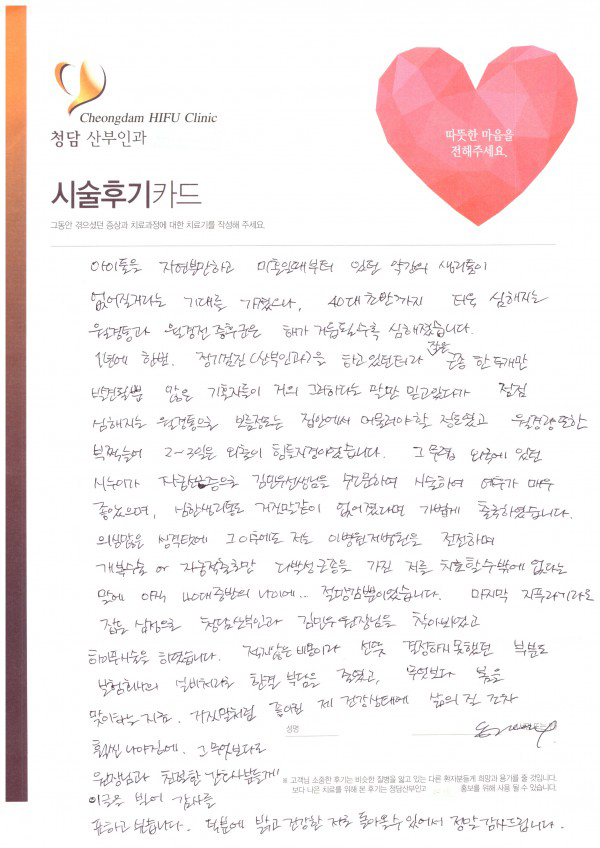 Cheongdam HIFU Clinic
청담 산부인과
따뜻한 마음을
전해주세요.
시술후기카드
그동안 겪으셨던 증상과 치료과정에 대한 치료기를 작성해 주세요.
아이들을 자연분만하고 미혼일때부터 있던 약간의 생리통이
없어질거라는 기대를 가졌으나, 40대 초반까지 더욱 심해지는
월경통과 월경전 증후군은 해가 거듭될수록 심해졌습니다.
1년에 한번. 정기검진(산부인과)을 하고 있었던터라 작은 근종 한두개만
발견될뿐 많은 기혼자들이 거의 그러하다는 말만 믿고있다가 점점
심해지는 월경통으로 보름정도는 집안에서 머물러야할 정도였고 월경량또한
부쩍늘어 2~3일은 외출이 힘들지경이었습니다. 그 무렵 외국에 있던
시누이가 자궁선근증으로 김민우선생님을 방문하여 시술하여 예후가 매우
좋았으며, 심한생리통도 거짓말같이 없어졌다며 가볍게 출국하였습니다.
의심많은 성격탓에 그 이후에도 저는 이병원저병원을 전전하며
개복수술 or 자궁적출만 다발성근종을 가진 저를 치료할수밖에 없다는
말에 아직 40대중반의 나이에.. 절망감뿐이었습니다. 마지막 지푸라기라도
잡을 심정으로 청담산부인과 김민우원장님을 찾아뵈었고
하이푸시술을 하였습니다. 적지않는 비용이라 선뜻 결정하지못했던 부분도
보험회사의 실비처리로 한결 부담을 줄였고, 무엇보다 봄을
맞이하는 지금. 거짓말처럼 좋아진 제 건강상태에 삶의 질 조차
훨씬 나아짐에. 그 무엇보다도
성명
원장님과 친절한 간호사분들게
※ 고객님 소중한 후기는 비슷한 질병을 앓고 있는 다른 환자분들께 희망과 용기를 줄 것입니다.
보다 나은 치료를 위해 본 후기는 청담산부인과 홍보를 위해 사용 될 수 있습니다.
이글을 빌어 감사를
표하고 싶습니다. 덕분에 밝고 건강한 저로 돌아올수 있어서 정말 감사드립니다.